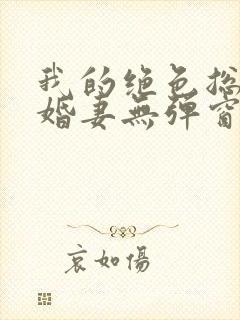 我的绝色总
婚妻無彈窗
哀如傷